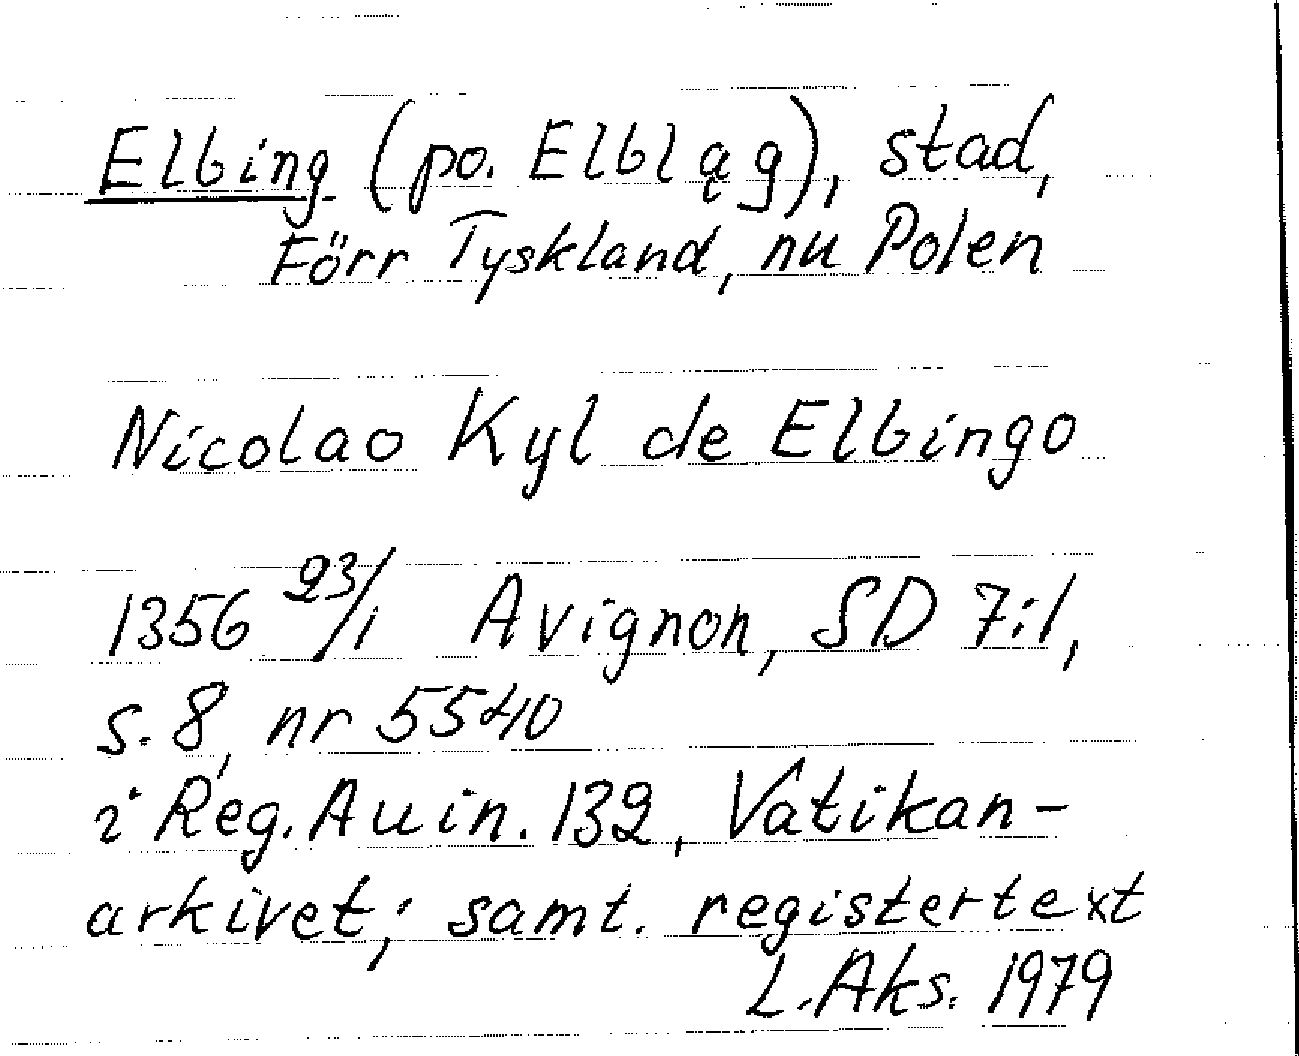 Elbing (po. Elbląg), stad,
Förr Tyskland, nu Polen
Nicolao Kyl de Elbingo
1356 23/1 Avignon, SD 7:1,
s. 8, nr 5540
i Reg. Auin. 132, Vatikan-
arkivet; samt. registertext
L. Aks. 1979